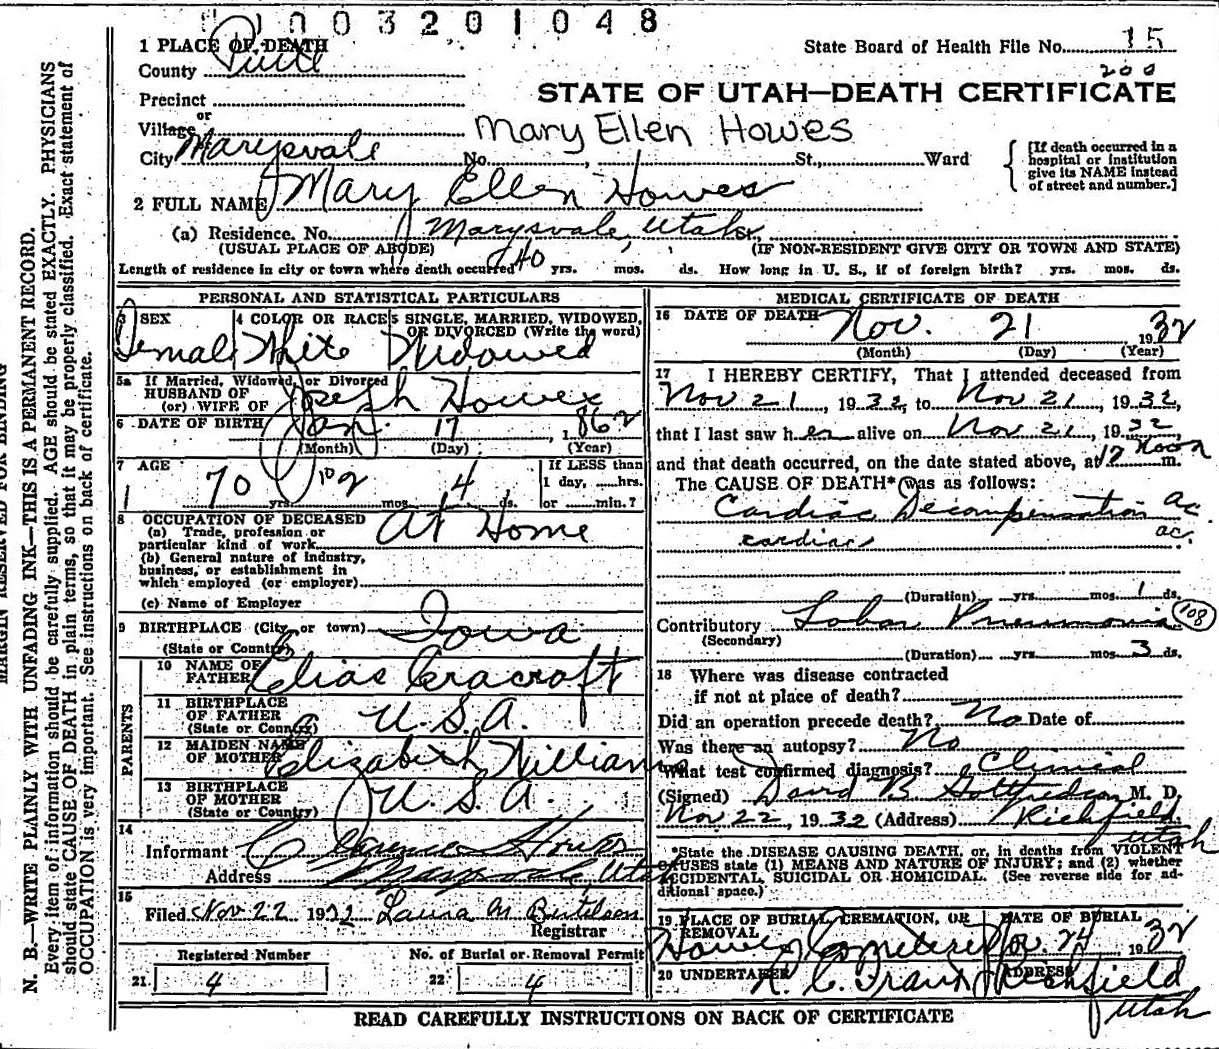 1003201048
1 PLACE OF DEATH
State Board of Health File No. 15
County Piute
200
Precinct
STATE OF UTAH—DEATH CERTIFICATE
or
Village
Mary Ellen Howes
City Marysvale No. , St., Ward
[If death occurred in a
hospital or institution
give its NAME instead
of street and number.]
2 FULL NAME Mary Ellen Howes
(a) Residence. No. Marysvale, Utah St.
(USUAL PLACE OF ABODE) (IF NON-RESIDENT GIVE CITY OR TOWN AND STATE)
Length of residence in city or town where death occurred 40 yrs. mos. ds. How long in U. S., if of foreign birth? yrs. mos. ds.
PERSONAL AND STATISTICAL PARTICULARS
3 SEX 4 COLOR OR RACE 5 SINGLE, MARRIED, WIDOWED,
OR DIVORCED (Write the word)
Female White Widowed
5a If Married, Widowed, or Divorced
HUSBAND OF
(or) WIFE OF Joseph Howes
6 DATE OF BIRTH Jan. 17, 1862
(Month) (Day) (Year)
7 AGE If LESS than
1 day, hrs.
70 yrs. 10 mos. 4 ds. or min.?
8 OCCUPATION OF DECEASED At Home
(a) Trade, profession or
particular kind of work
(b) General nature of industry,
business, or establishment in
which employed (or employer)
(c) Name of Employer
9 BIRTHPLACE (City or town) Iowa
(State or Country)
PARENTS
10 NAME OF
FATHER Elias Cracroft
11 BIRTHPLACE
OF FATHER U.S.A.
(State or Country)
12 MAIDEN NAME
OF MOTHER Elizabeth Williams
13 BIRTHPLACE
OF MOTHER U.S.A.
(State or Country)
14
Informant Clarence Howes
Address Marysvale, Utah
15
Filed Nov 22 1932 Laura M. Bertelsen
Registrar
Registered Number No. of Burial or Removal Permit
21 4 22 4
MEDICAL CERTIFICATE OF DEATH
16 DATE OF DEATH Nov. 21 1932
(Month) (Day) (Year)
17 I HEREBY CERTIFY, That I attended deceased from
Nov 21, 1932, to Nov 21, 1932,
that I last saw her alive on Nov 21, 1932
and that death occurred, on the date stated above, at 12 Noon m.
The CAUSE OF DEATH* was as follows:
Cardiac Decompensation ac.
cardiac ac.
(Duration) yrs. mos. 1 ds.
Contributory Lobar Pneumonia 108
(Secondary)
(Duration) yrs. mos. 3 ds.
18 Where was disease contracted
if not at place of death?
Did an operation precede death? No Date of
Was there an autopsy? No
What test confirmed diagnosis? Clinical
(Signed) David B. Gottfredson M. D.
Nov 22, 1932 (Address) Richfield,
Utah
*State the DISEASE CAUSING DEATH, or, in deaths from VIOLENT
CAUSES state (1) MEANS AND NATURE OF INJURY; and (2) whether
ACCIDENTAL SUICIDAL OR HOMICIDAL. (See reverse side for ad-
ditional space.)
19 PLACE OF BURIAL, CREMATION, OR DATE OF BURIAL
REMOVAL
Howes Cemetery Nov. 24 1932
20 UNDERTAKER ADDRESS
Richfield
Utah
READ CAREFULLY INSTRUCTIONS ON BACK OF CERTIFICATE
MARGIN RESERVED FOR BINDING
N. B.—WRITE PLAINLY WITH UNFADING INK—THIS IS A PERMANENT RECORD.
Every item of information should be carefully supplied. AGE should be stated EXACTLY. PHYSICIANS
should state CAUSE OF DEATH in plain terms, so that it may be properly classified. Exact statement of
OCCUPATION is very important. See instructions on back of certificate.